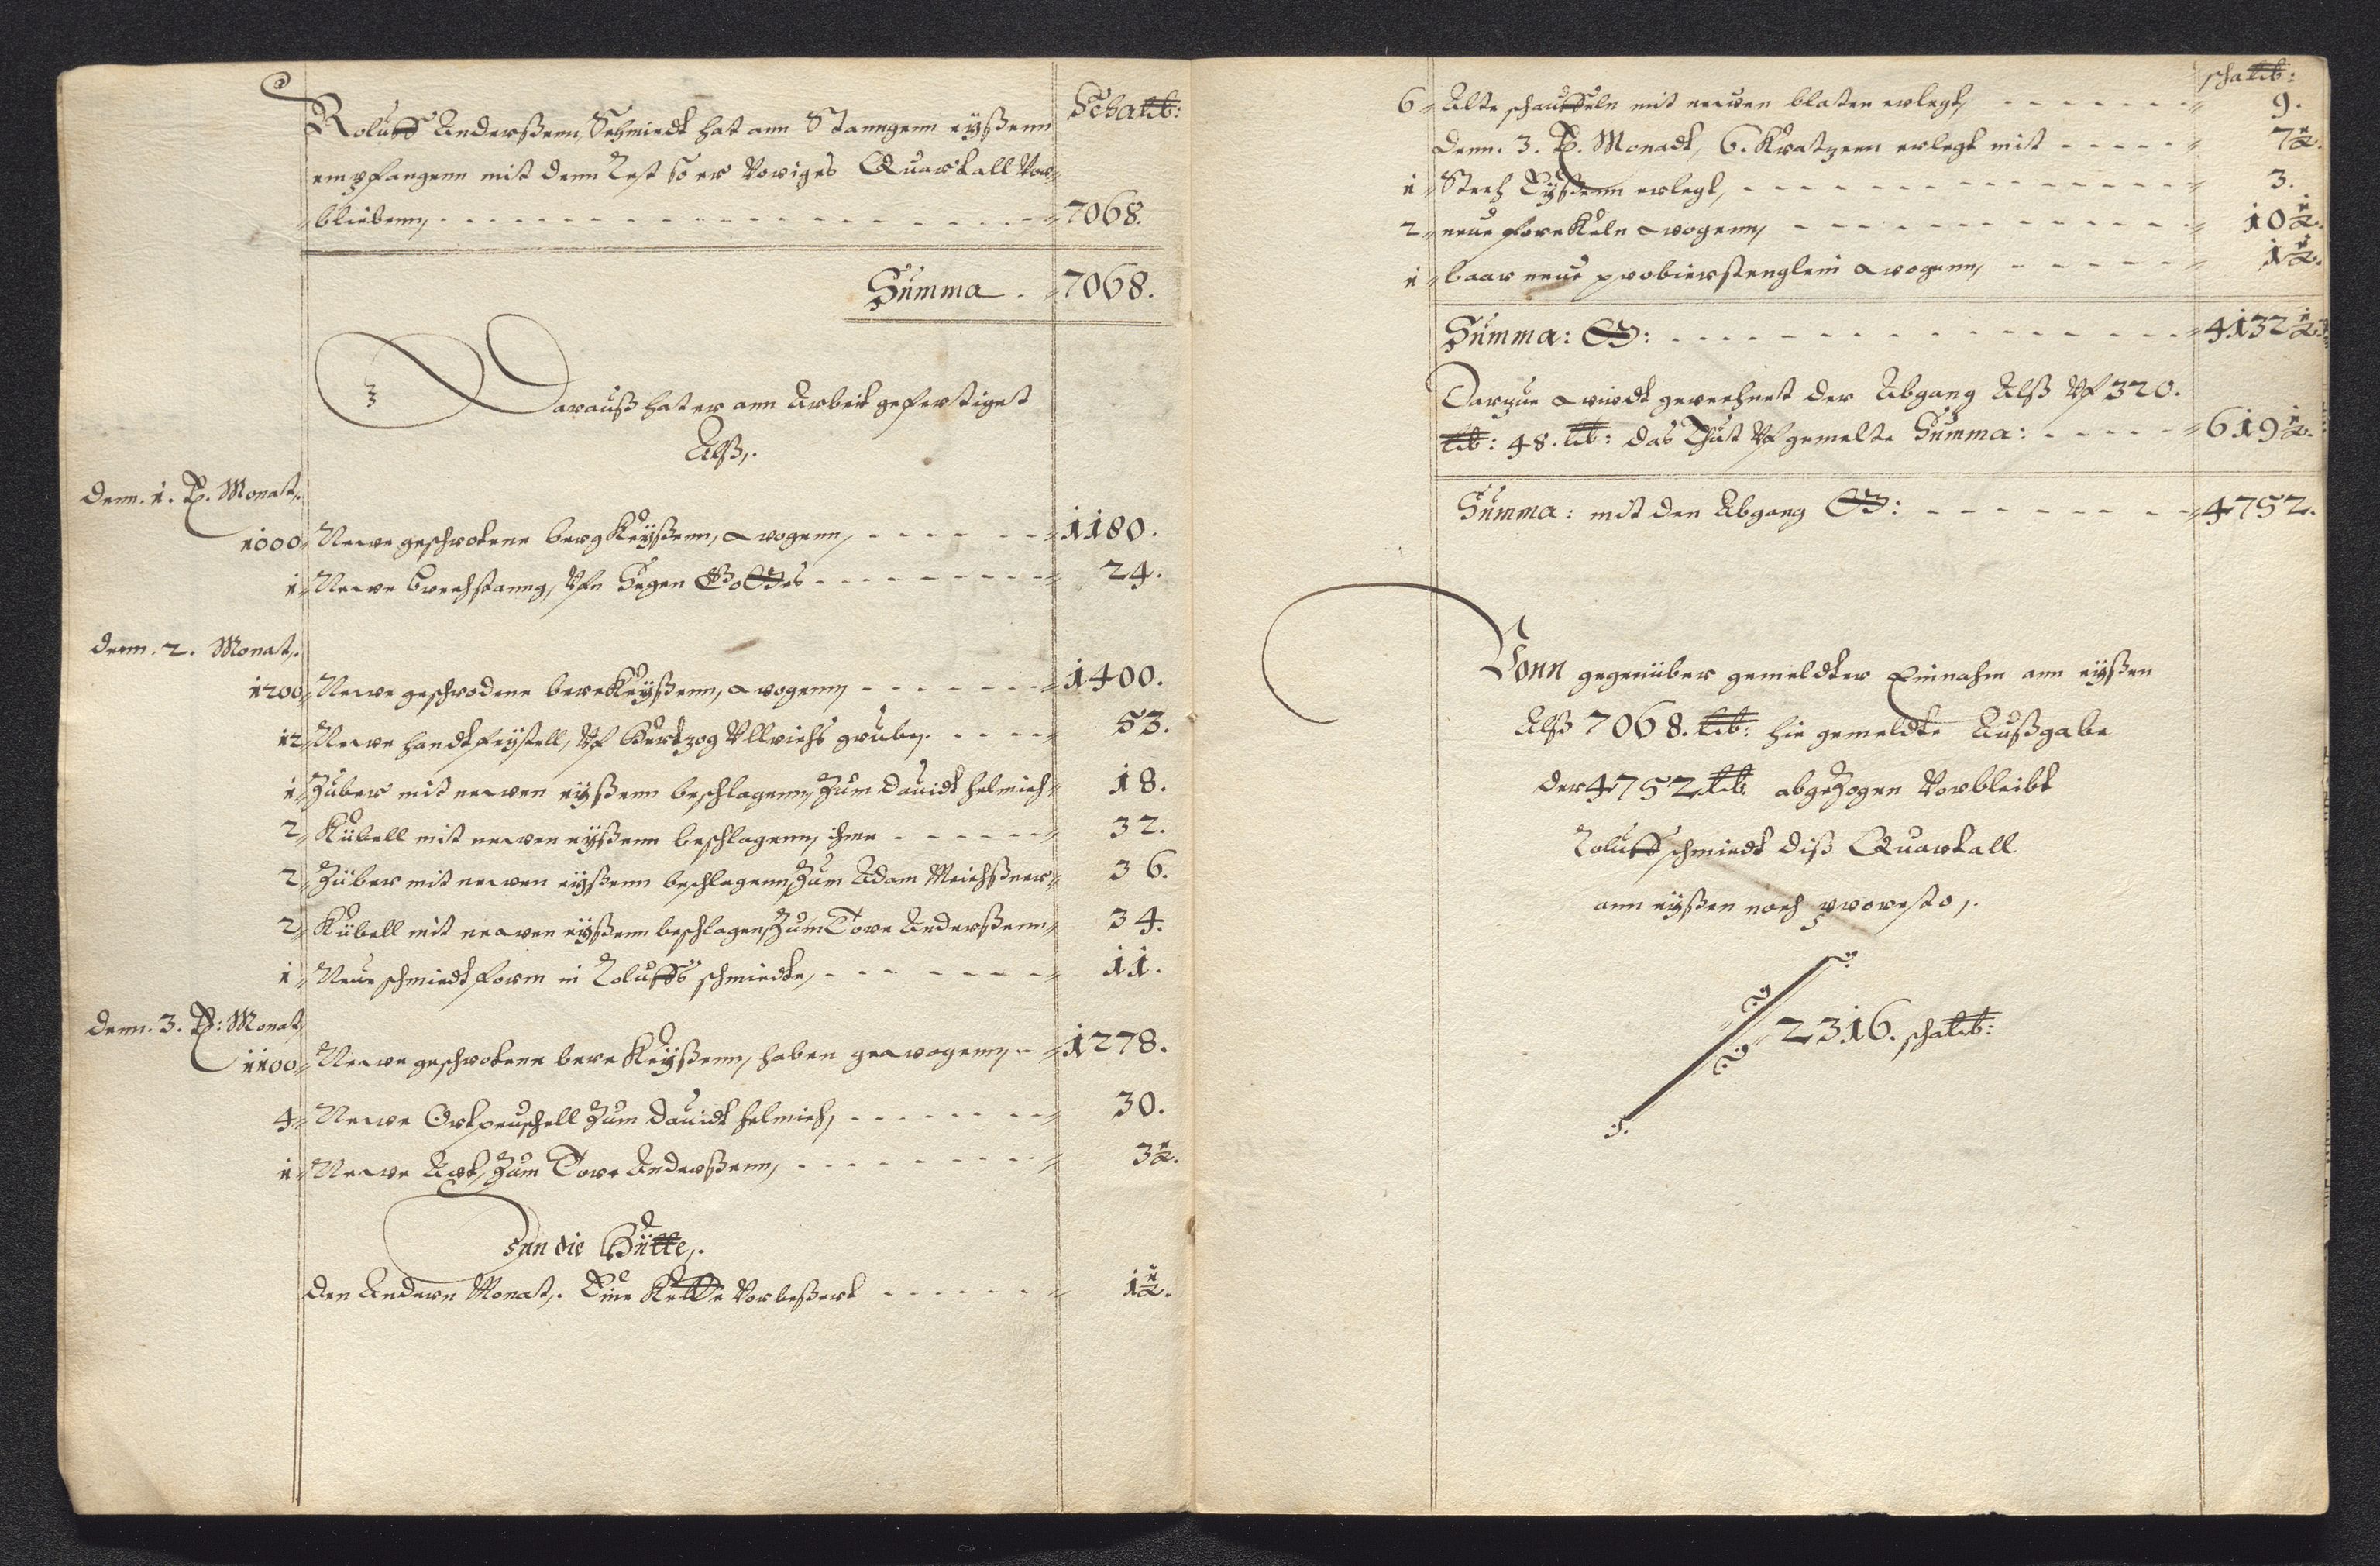 Schalib:
Roluff Anderßenn Schmiedt hat ann Stanngenn eyßenn
empfangenn mit denn Rest so er Voriges Quartall Vor
bliebenn, 7068.
Summa. 7068.
Darauß hat er ann Arbeit gefertiget
Alß,.
Denn. 1. Monat,.
1000 Newe geschrotene bergkeyßenn, wogenn, 1180.
1 Newe brechstanng, Vfn Segen Gottes 24.
Denn. 2. Monat,.
1200 Newe geschrodene berckeyßenn, wogenn, 1400.
12 Newe handtfeystell, Vf Hertzog Vllrichs grube,. 53.
1 Züber mit newen eyßenn beschlagenn, Zum Dauidt Helmich 18.
2 Kübell mit newen eyßenn beschlagenn, ihme 32.
2 Züber mit newen eyßenn beschlagenn, Zum Adam Meichßner 36.
2 Kübell mit newen eyßenn beschlagen, Zum Tore Anderßenn 34.
1 Neue schmiedt form in Roluffs schmiedte, 11.
Denn. 3. Monat,
1100 Newe geschrotene berckeyßenn, haben gewogenn, 1278.
4 Newe Ortpeuschell Zum Dauidt Helmich, 30.
1 Newe Axt, Zum Tore Anderßenn, 3 1/2.
Inn die Hütte,.
Den Andern Monat,. Eine Kette Vorbeßert 1 1/2.
schalib:
6 Alte schauffeln mit newen blaten erlegt, 9.
Denn. 3. Monadt, 6. Kratzenn erlegt mit 7 1/2.
1 Stech Eyßenn erlegt, 3.
2 neue forckeln wogenn, 10 1/2.
1 baar neue probierstenglein wogenn, 1 1/2.
Summa: 4132 1/2.
Darzue wirdt gerechnet der Abgang Alß Vf 320.
lib: 48. lib: das Thut Vf gemelte Summa: 619 1/2.
Summa: mit den Abgang 4752.
Vonn gegenüber gemeldter Einnahm ann eyßen
Alß 7068. lib: hie gemeldte Außgabe
der 4752 lib. abgezogen Vorbleibt
Roluff schmiedt diß Quartall
ann eyßen noch proresto,.
2316. schalib: